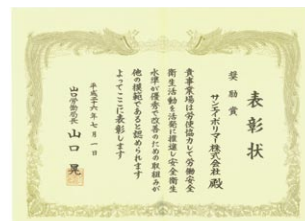 表彰状
奨励賞
サンエイポリマー株式会社 殿
貴事業場は労使協力して労働安全
衛生活動を活発に推進し安全衛生
水準が優秀で改善のための取組みが
他の模範であると認められます
よってここに表彰します
平成二十六年七月一日
山口労働局長 山口晃